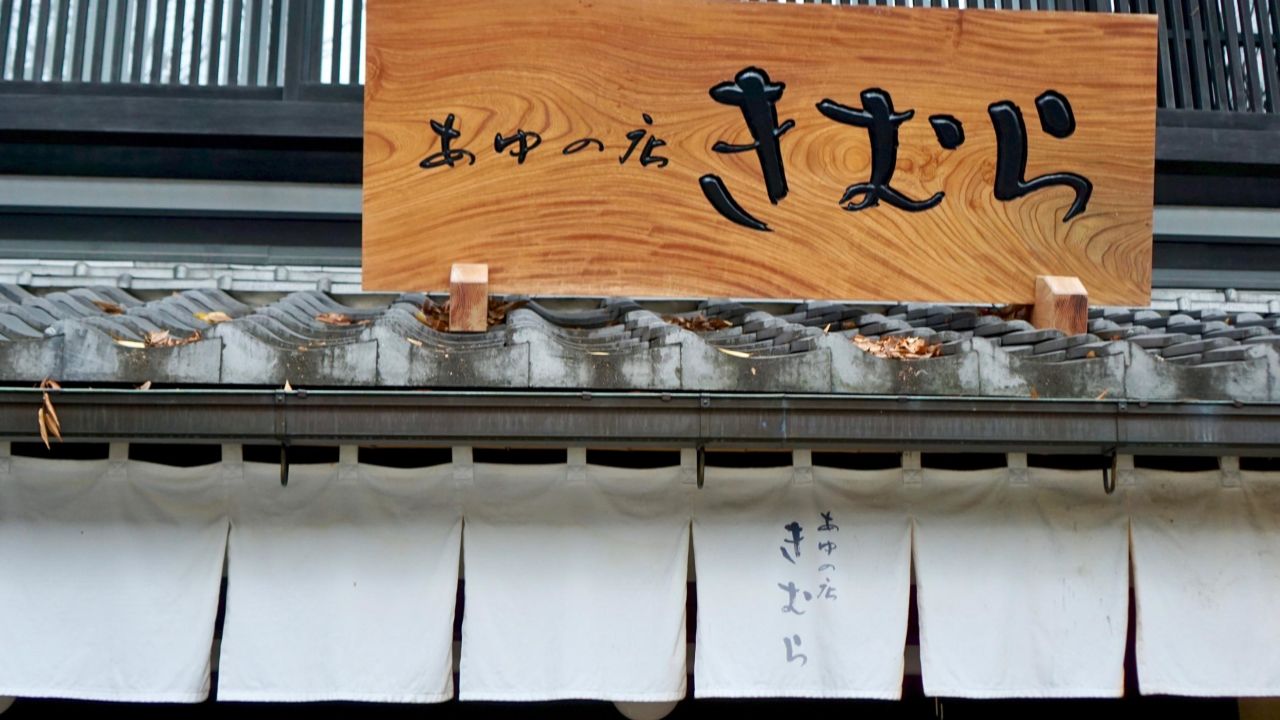 あゆの店 きむら
あゆの店
きむら